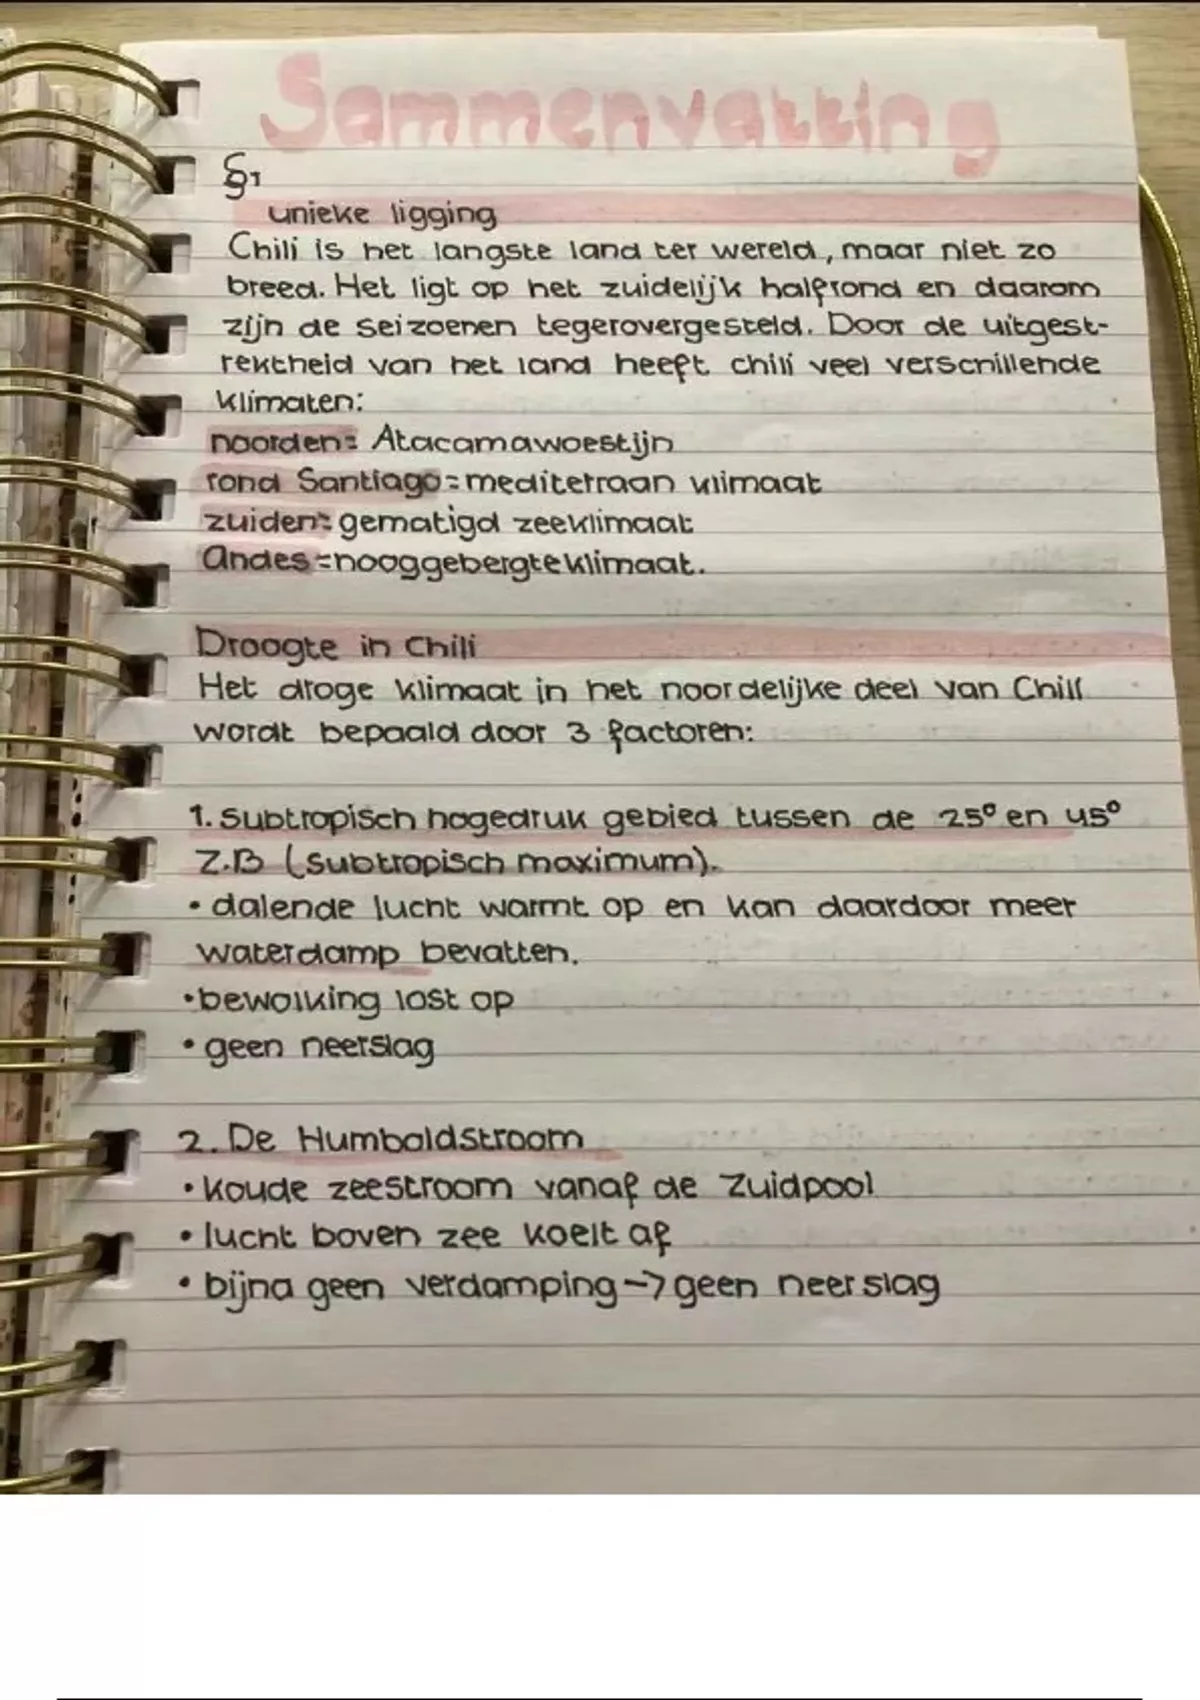 Sammenvatting
§1
unieke ligging
Chili is het langste land ter wereld, maar niet zo
breed. Het ligt op het zuidelijk halfrond en daarom
zijn de seizoenen tegerovergesteld. Door de uitgest-
rektheid van het land heeft chili veel verschillende
klimaten:
noorden= Atacamawoestijn
rond Santiago=mediterraan klimaat
zuiden= gematigd zeeklimaat
Andes=hooggebergteklimaat.
Droogte in Chili
Het droge klimaat in het noordelijke deel van Chili
wordt bepaald door 3 factoren:
1. Subtropisch hogedruk gebied tussen de 25° en 45°
Z.B (subtropisch maximum).
• dalende lucht warmt op en kan daardoor meer
waterdamp bevatten.
• bewolking lost op
• geen neerslag
2. De Humboldstroom
• koude zeestroom vanaf de Zuidpool
• lucht boven zee koelt af
• bijna geen verdamping -> geen neerslag